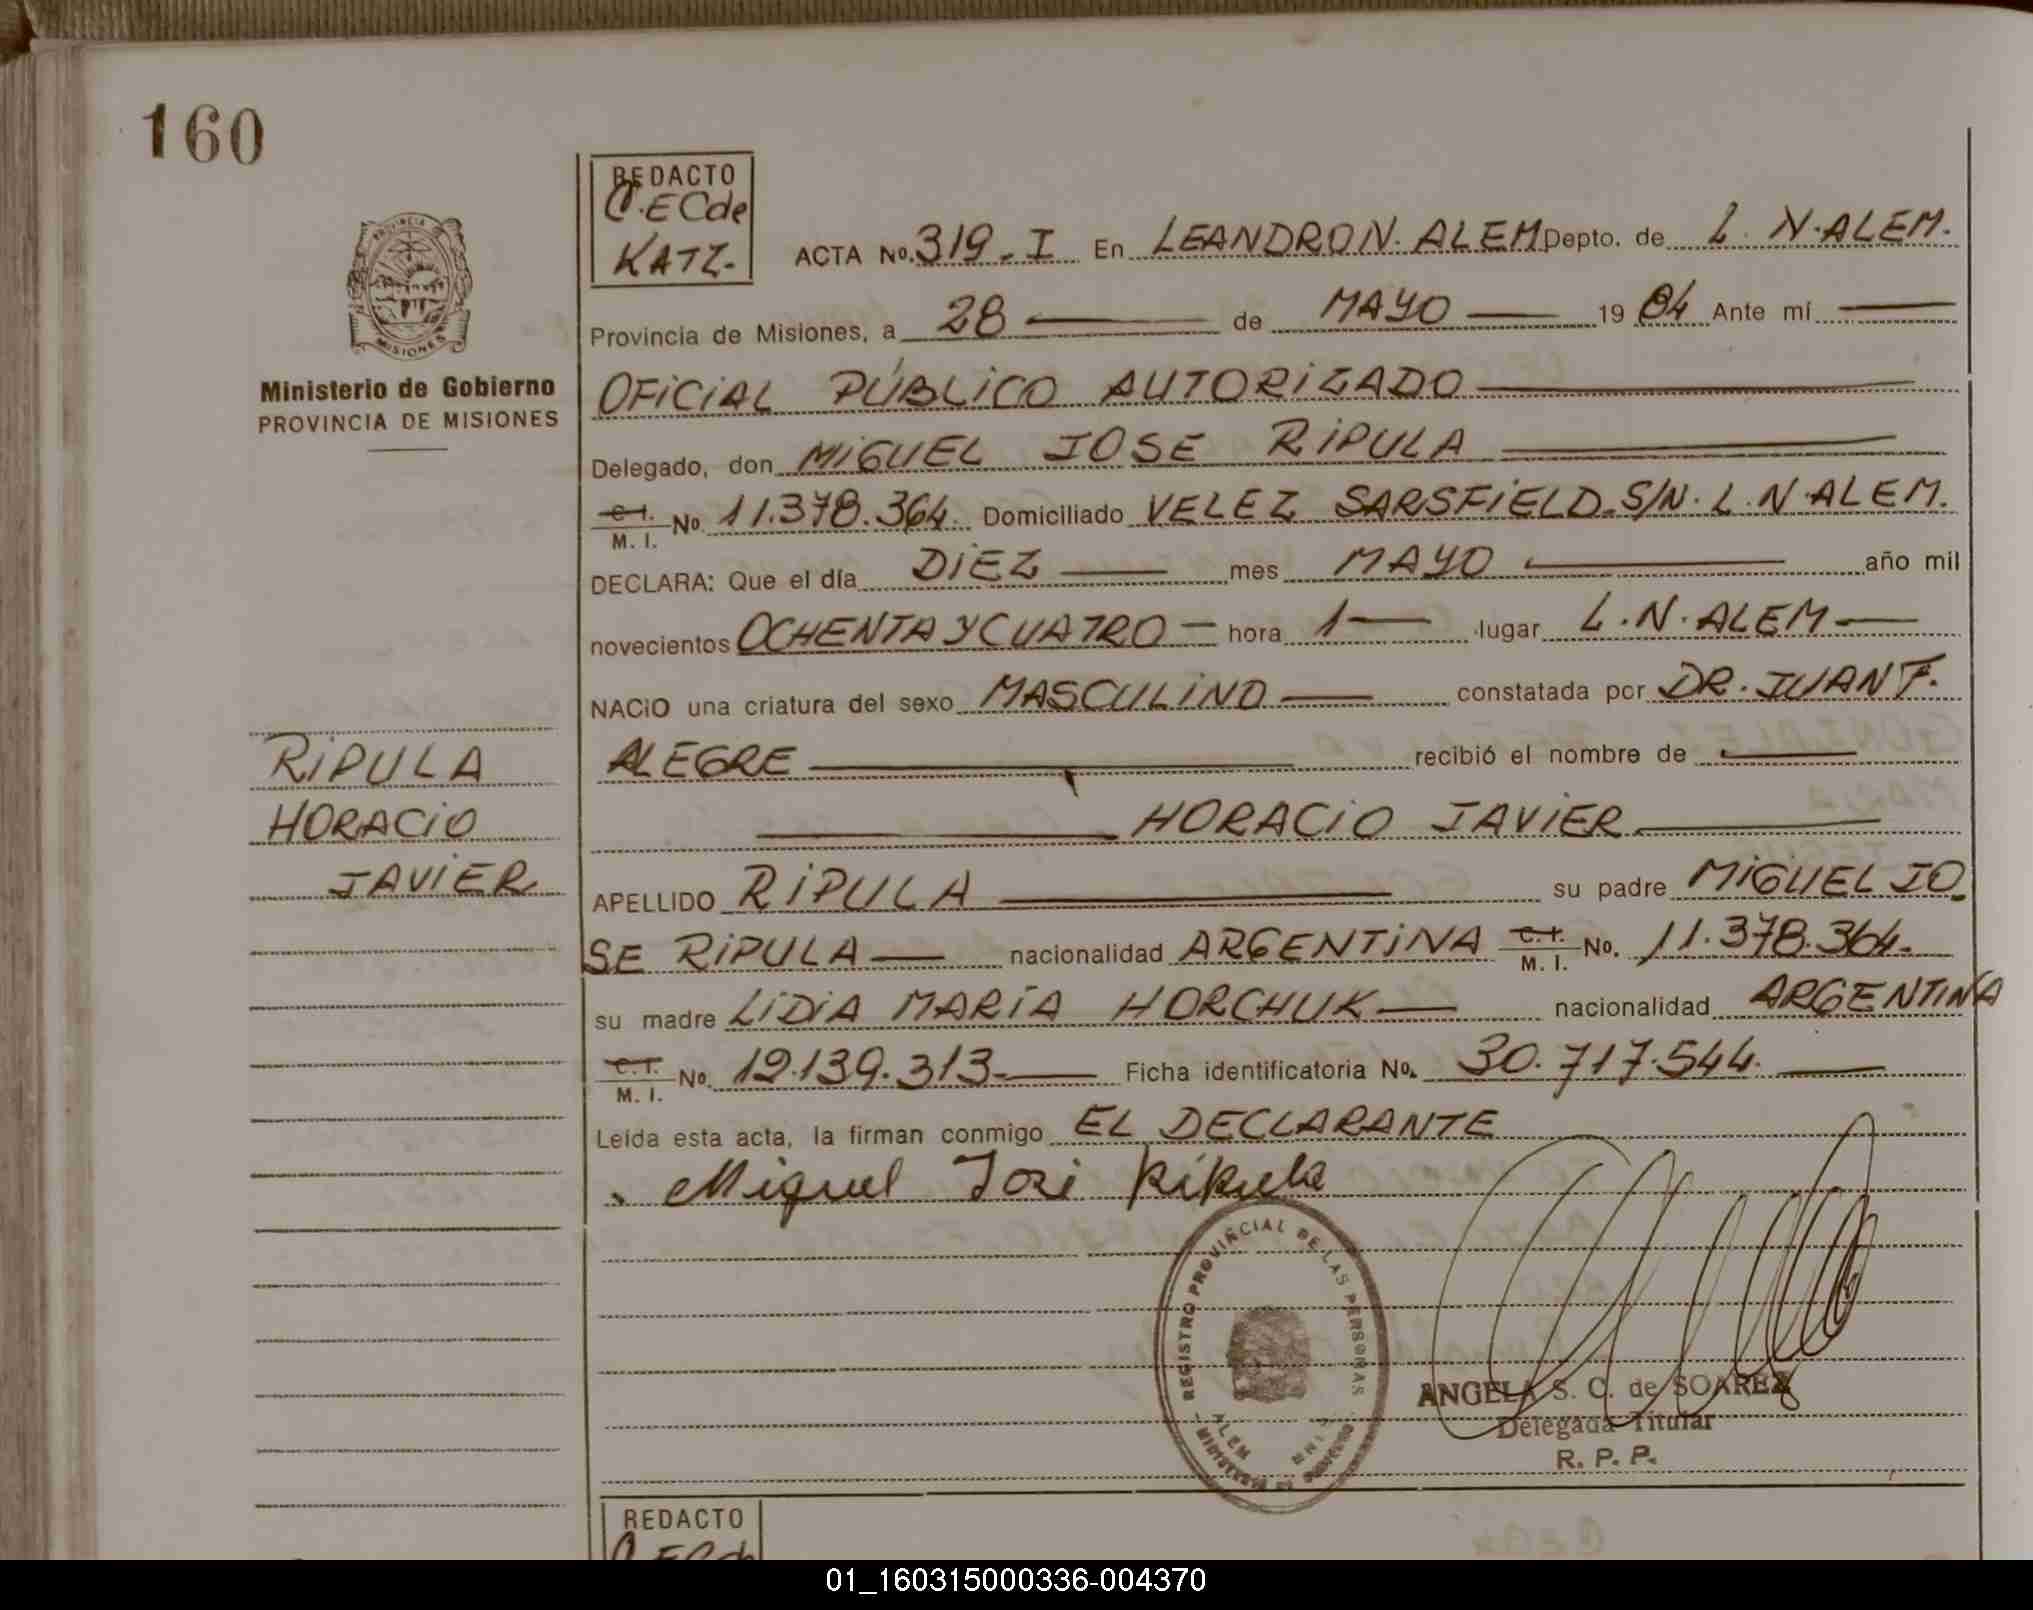 160
REDACTO
C.EC de
KATZ.-
ACTA No. 319-I En LEANDRO N. ALEM Depto. de L. N. ALEM.
PROVINCIA
MISIONES
Provincia de Misiones, a 28 de MAYO 1984 Ante mí
Ministerio de Gobierno
PROVINCIA DE MISIONES
OFICIAL PÚBLICO AUTORIZADO
Delegado, don MIGUEL JOSE RIPULA
C. I. M. I. No. 11.378.364. Domiciliado VELEZ SARSFIELD. S/N. L. N. ALEM.
DECLARA: Que el día DIEZ mes MAYO año mil
novecientos OCHENTA Y CUATRO hora 1 lugar L. N. ALEM
NACIO una criatura del sexo MASCULINO constatada por DR. JUAN F.
ALEGRE recibió el nombre de
HORACIO JAVIER
RIPULA
HORACIO
JAVIER
APELLIDO RIPULA su padre MIGUEL JO
SE RIPULA nacionalidad ARGENTINA C. I. M. I. No. 11.378.364.
su madre LIDIA MARÍA HORCHUK nacionalidad ARGENTINA
C. I. M. I. No. 12.139.313. Ficha identificatoria No. 30.717.544.
Leída esta acta, la firman conmigo EL DECLARANTE
Miguel José Ripula
REGISTRO PROVINCIAL DE LAS PERSONAS
ALEM
MINISTERIO DE GOBIERNO
ANGELA S. C. de SOAREZ
Delegada Titular
R. P. P.
REDACTO
01_160315000336-004370